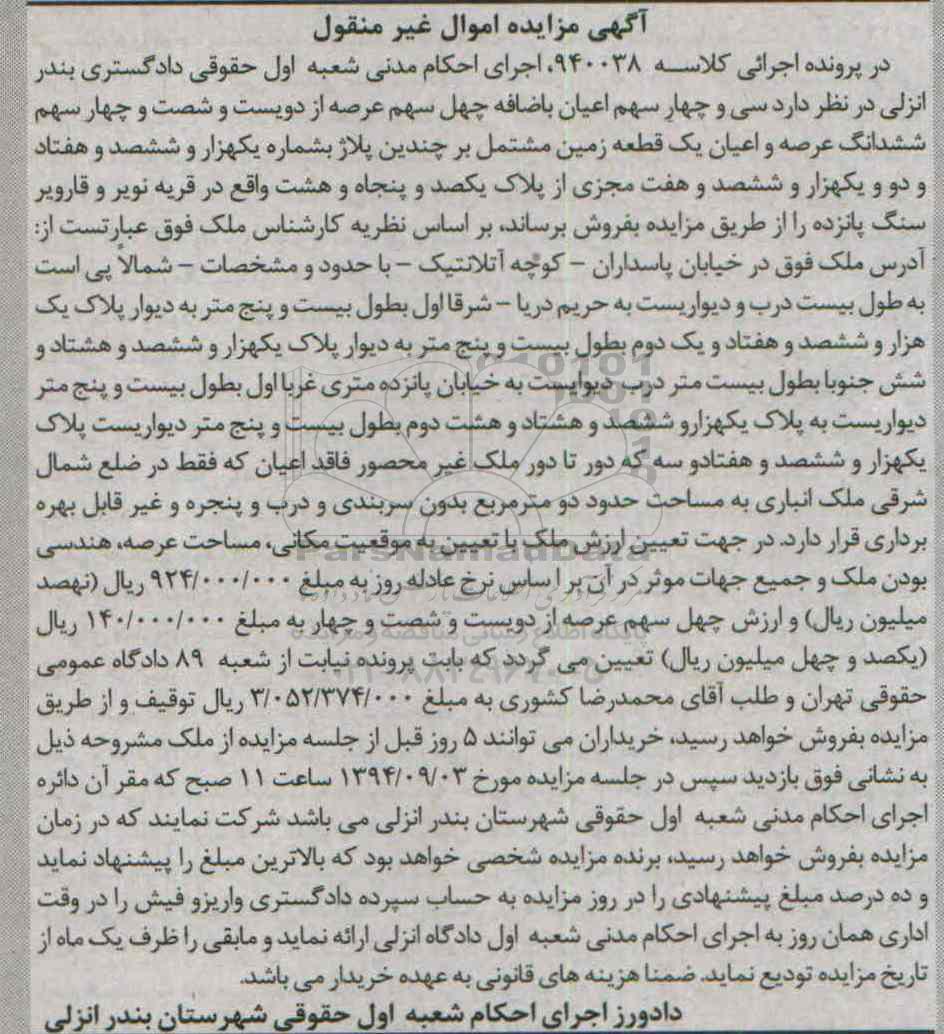 آگهی مزایده اموال غیر منقول
در پرونده اجرائی کلاسه ۹۴۰۰۳۸، اجرای احکام مدنی شعبه اول حقوقی دادگستری بندر
انزلی در نظر دارد سی و چهار سهم اعیان باضافه چهل سهم عرصه از دویست و شصت و چهار سهم
ششدانگ عرصه و اعیان یک قطعه زمین مشتمل بر چندین پلاژ بشماره یکهزار و ششصد و هفتاد
و دو و یکهزار و ششصد و هفت مجزی از پلاک یکصد و پنجاه و هشت واقع در قریه نویر و قارویر
سنگ پانزده را از طریق مزایده بفروش برساند، بر اساس نظریه کارشناس ملک فوق عبارتست از:
آدرس ملک فوق در خیابان پاسداران – کوچه آتلانتیک – با حدود و مشخصات – شمالاً پی است
به طول بیست درب و دیواریست به حریم دریا – شرقا اول بطول بیست و پنج متر به دیوار پلاک یک
هزار و ششصد و هفتاد و یک دوم بطول بیست و پنج متر به دیوار پلاک یکهزار و ششصد و هشتاد و
شش جنوبا بطول بیست متر درب دیوایست به خیابان پانزده متری غربا اول بطول بیست و پنج متر
دیواریست به پلاک یکهزارو ششصد و هشتاد و هشت دوم بطول بیست و پنج متر دیواریست پلاک
یکهزار و ششصد و هفتادو سه که دور تا دور ملک غیر محصور فاقد اعیان که فقط در ضلع شمال
شرقی ملک انباری به مساحت حدود دو مترمربع بدون سربندی و درب و پنجره و غیر قابل بهره
برداری قرار دارد. در جهت تعیین ارزش ملک با تعیین به موقعیت مکانی، مساحت عرصه، هندسی
بودن ملک و جمیع جهات موثر در آن بر اساس نرخ عادله روز به مبلغ ۹۲۴/۰۰۰/۰۰۰ ریال (نهصد
میلیون ریال) و ارزش چهل سهم عرصه از دویست و شصت و چهار به مبلغ ۱۴۰/۰۰۰/۰۰۰ ریال
(یکصد و چهل میلیون ریال) تعیین می گردد که بابت پرونده نیابت از شعبه ۸۹ دادگاه عمومی
حقوقی تهران و طلب آقای محمدرضا کشوری به مبلغ ۳/۰۵۲/۳۷۴/۰۰۰ ریال توقیف و از طریق
مزایده بفروش خواهد رسید، خریداران می توانند ۵ روز قبل از جلسه مزایده از ملک مشروحه ذیل
به نشانی فوق بازدید سپس در جلسه مزایده مورخ ۱۳۹۴/۰۹/۰۳ ساعت ۱۱ صبح که مقر آن دائره
اجرای احکام مدنی شعبه اول حقوقی شهرستان بندر انزلی می باشد شرکت نمایند که در زمان
مزایده بفروش خواهد رسید، برنده مزایده شخصی خواهد بود که بالاترین مبلغ را پیشنهاد نماید
و ده درصد مبلغ پیشنهادی را در روز مزایده به حساب سپرده دادگستری واریزو فیش را در وقت
اداری همان روز به اجرای احکام مدنی شعبه اول دادگاه انزلی ارائه نماید و مابقی را ظرف یک ماه از
تاریخ مزایده تودیع نماید. ضمنا هزینه های قانونی به عهده خریدار می باشد.
دادورز اجرای احکام شعبه اول حقوقی شهرستان بندر انزلی
ParsNamadData